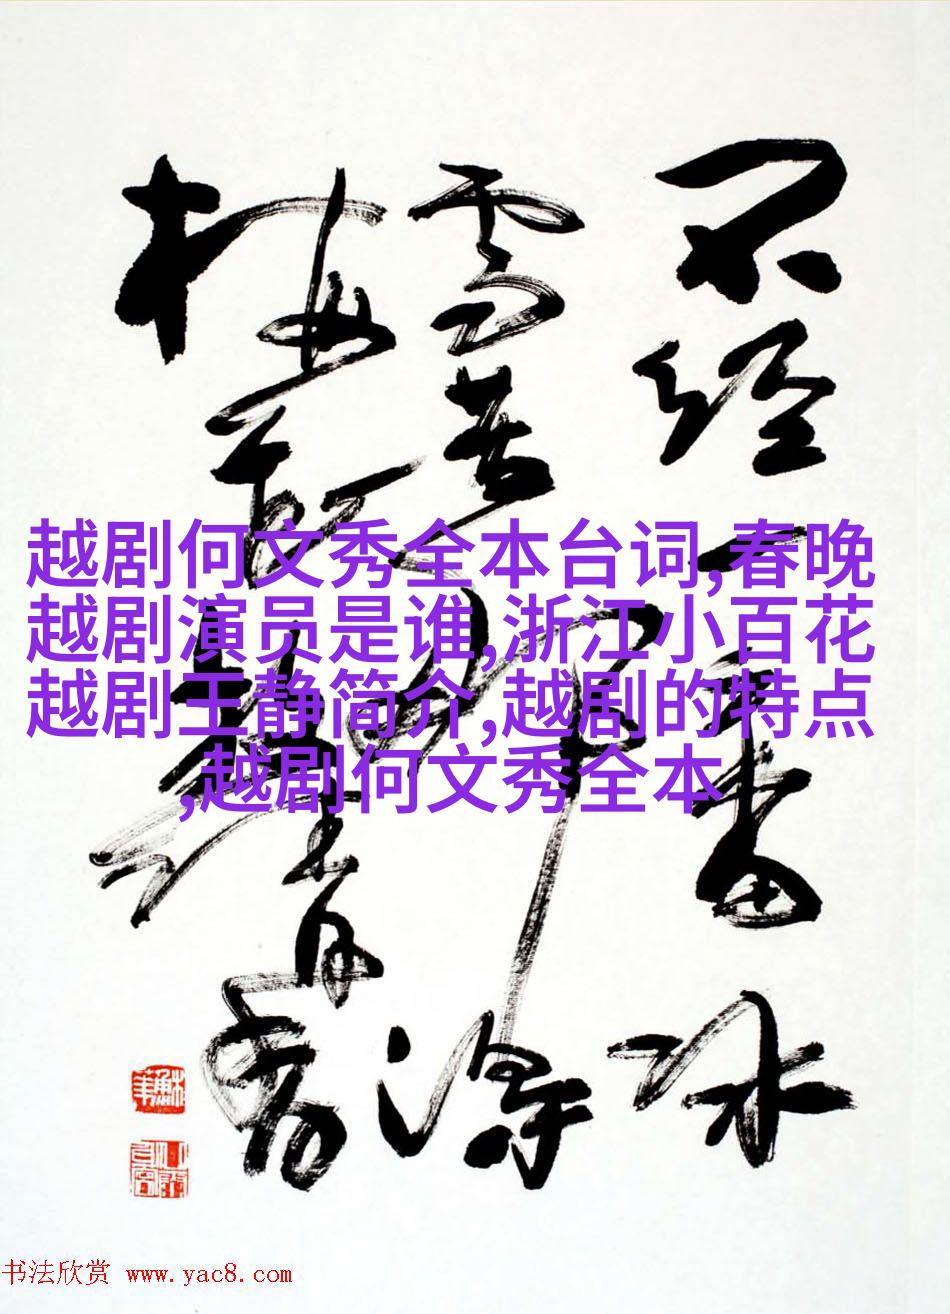 不经一番冰
雪苦那得
梅清香
越剧何文秀全本台词,春晚
越剧演员是谁,浙江小百花
越剧王静简介,越剧的特点
,越剧何文秀全本
书法欣赏 www.yac8.com